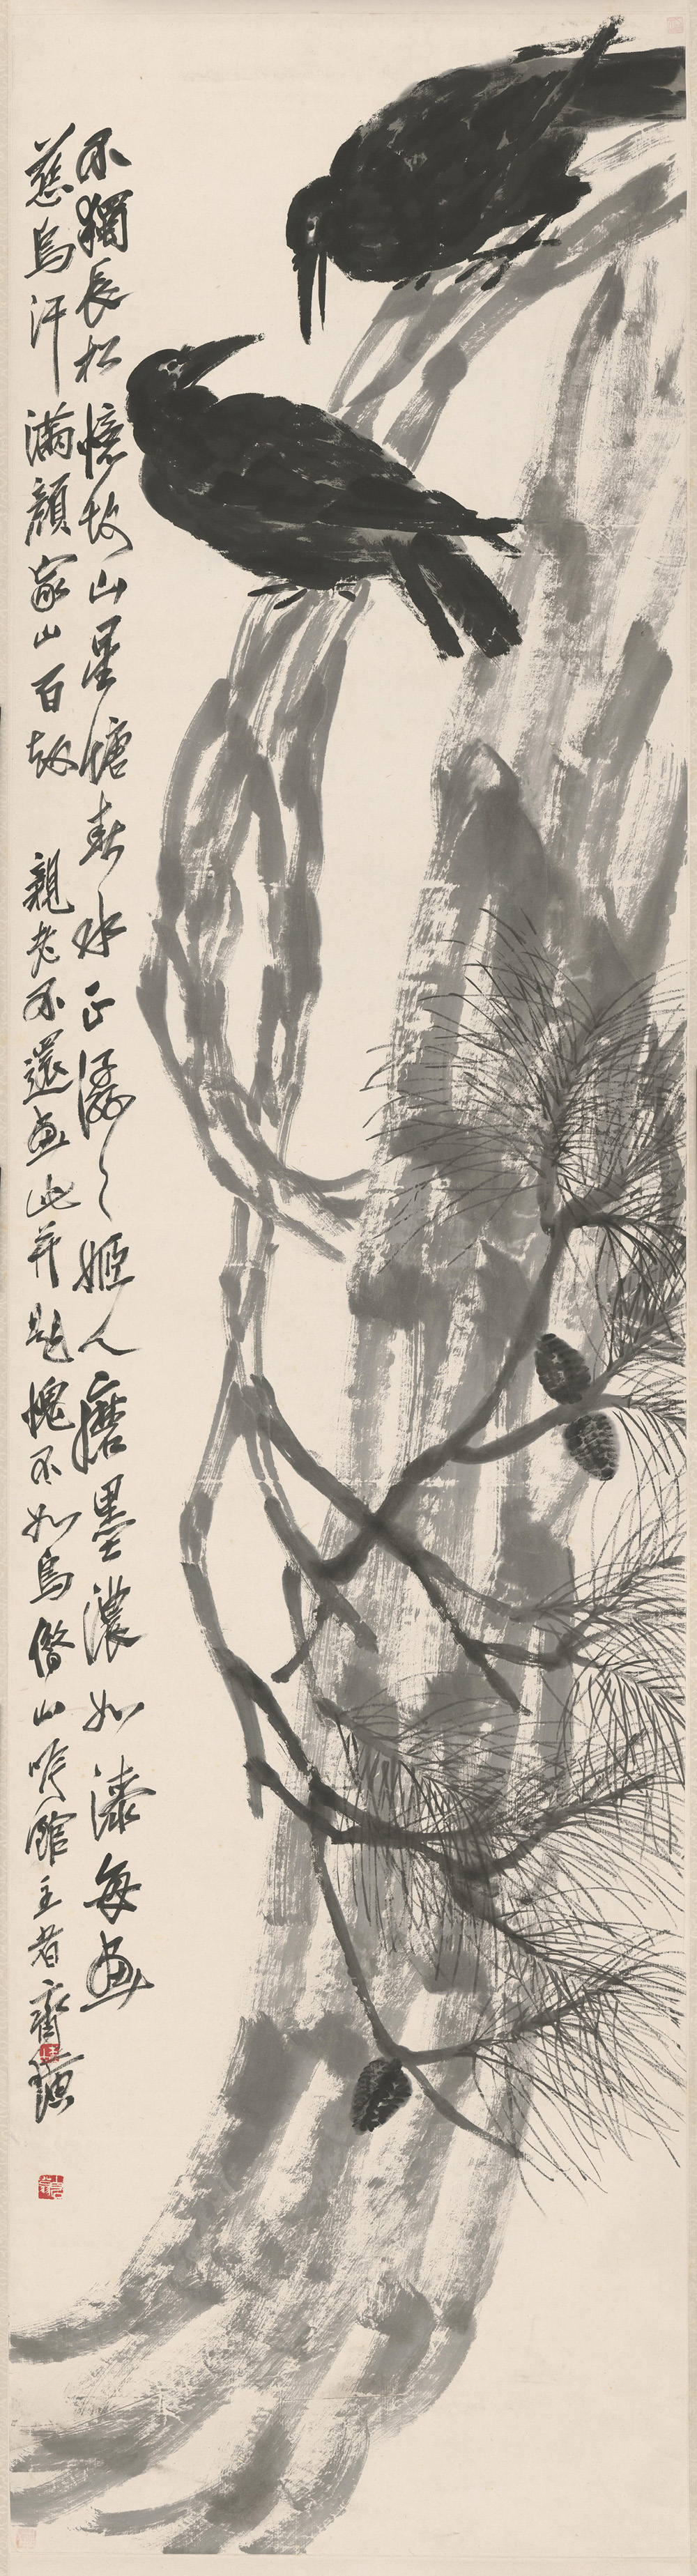 不獨長松憶故山星塘春水正潺〻姬人磨墨濃如漆每畫
慈烏汗滿顏家山百故 親老不還畫此并題愧不如烏借山吟館主者齊璜